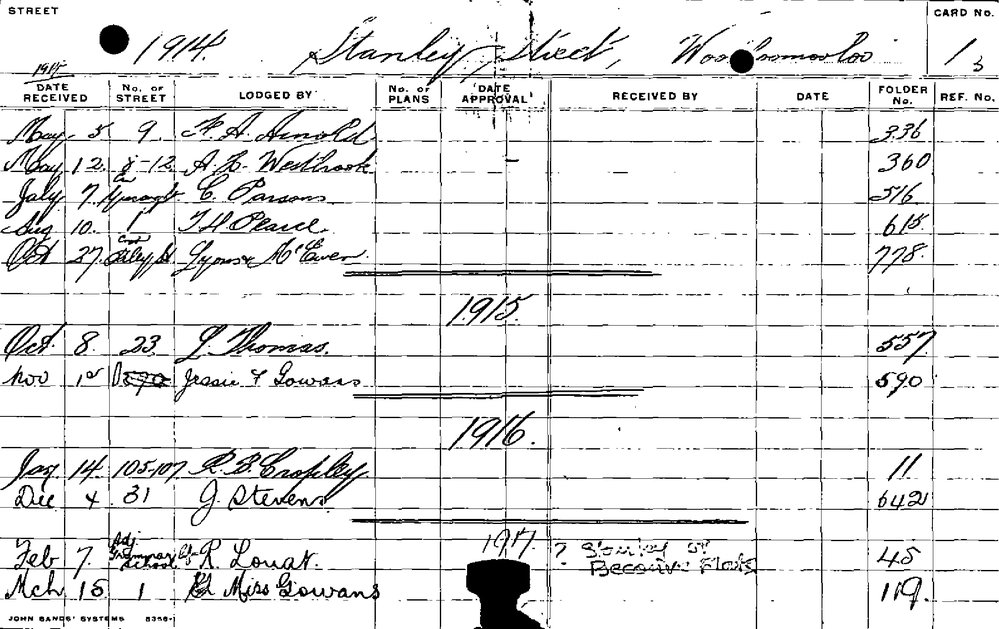 STREET
CARD NO.
1914. Stanley Street, Woolloomooloo 1
1914
DATE RECEIVED No. OF STREET LODGED BY No. OF PLANS DATE APPROVAL RECEIVED BY DATE FOLDER No. REF. No.
May 5 9. A. Arnold 336
May 12 -12 A. Westbrook 360
July 7. C. Parsons 516
Aug 10. 1 T H Pearce 615
Oct 27. Cnr Riley St Lyons & McEwen 778.
1915.
Oct. 8. 23 L. Thomas. 557
Nov 1st Jessie F Gowans 590
1916.
Jan 14. 105-107 R. B. Cropley. 11
Dec 4 31 J. Stevens 642
1917.
Feb 7. Adj. Grammar School R. Louat. ? Stanley St Become Flats 45
Mch 15 1 Miss Gowans 119.
JOHN SANDS' SYSTEMS 8356-